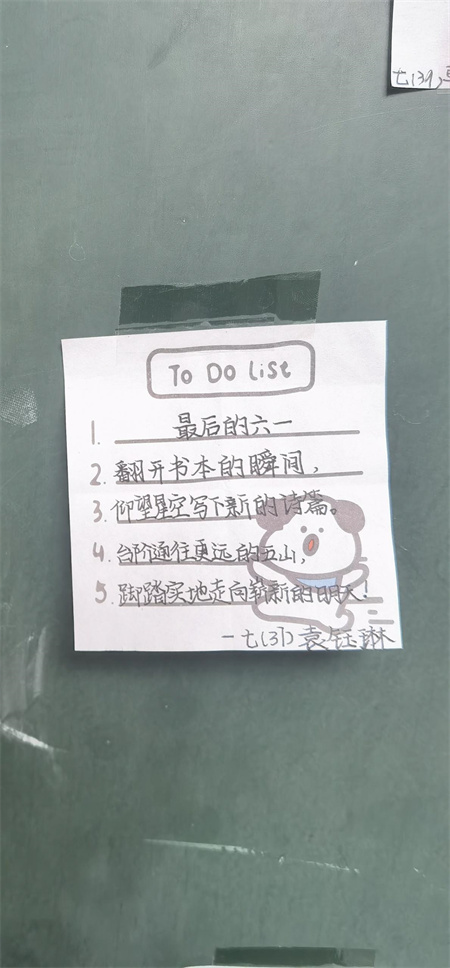 七(39)
To Do List
1. 最后的六一
2. 翻开书本的瞬间，
3. 仰望星空写下新的诗篇。
4. 台阶通往更远的五山，
5. 脚踏实地走向崭新的明天！
一七(37)袁钰琳